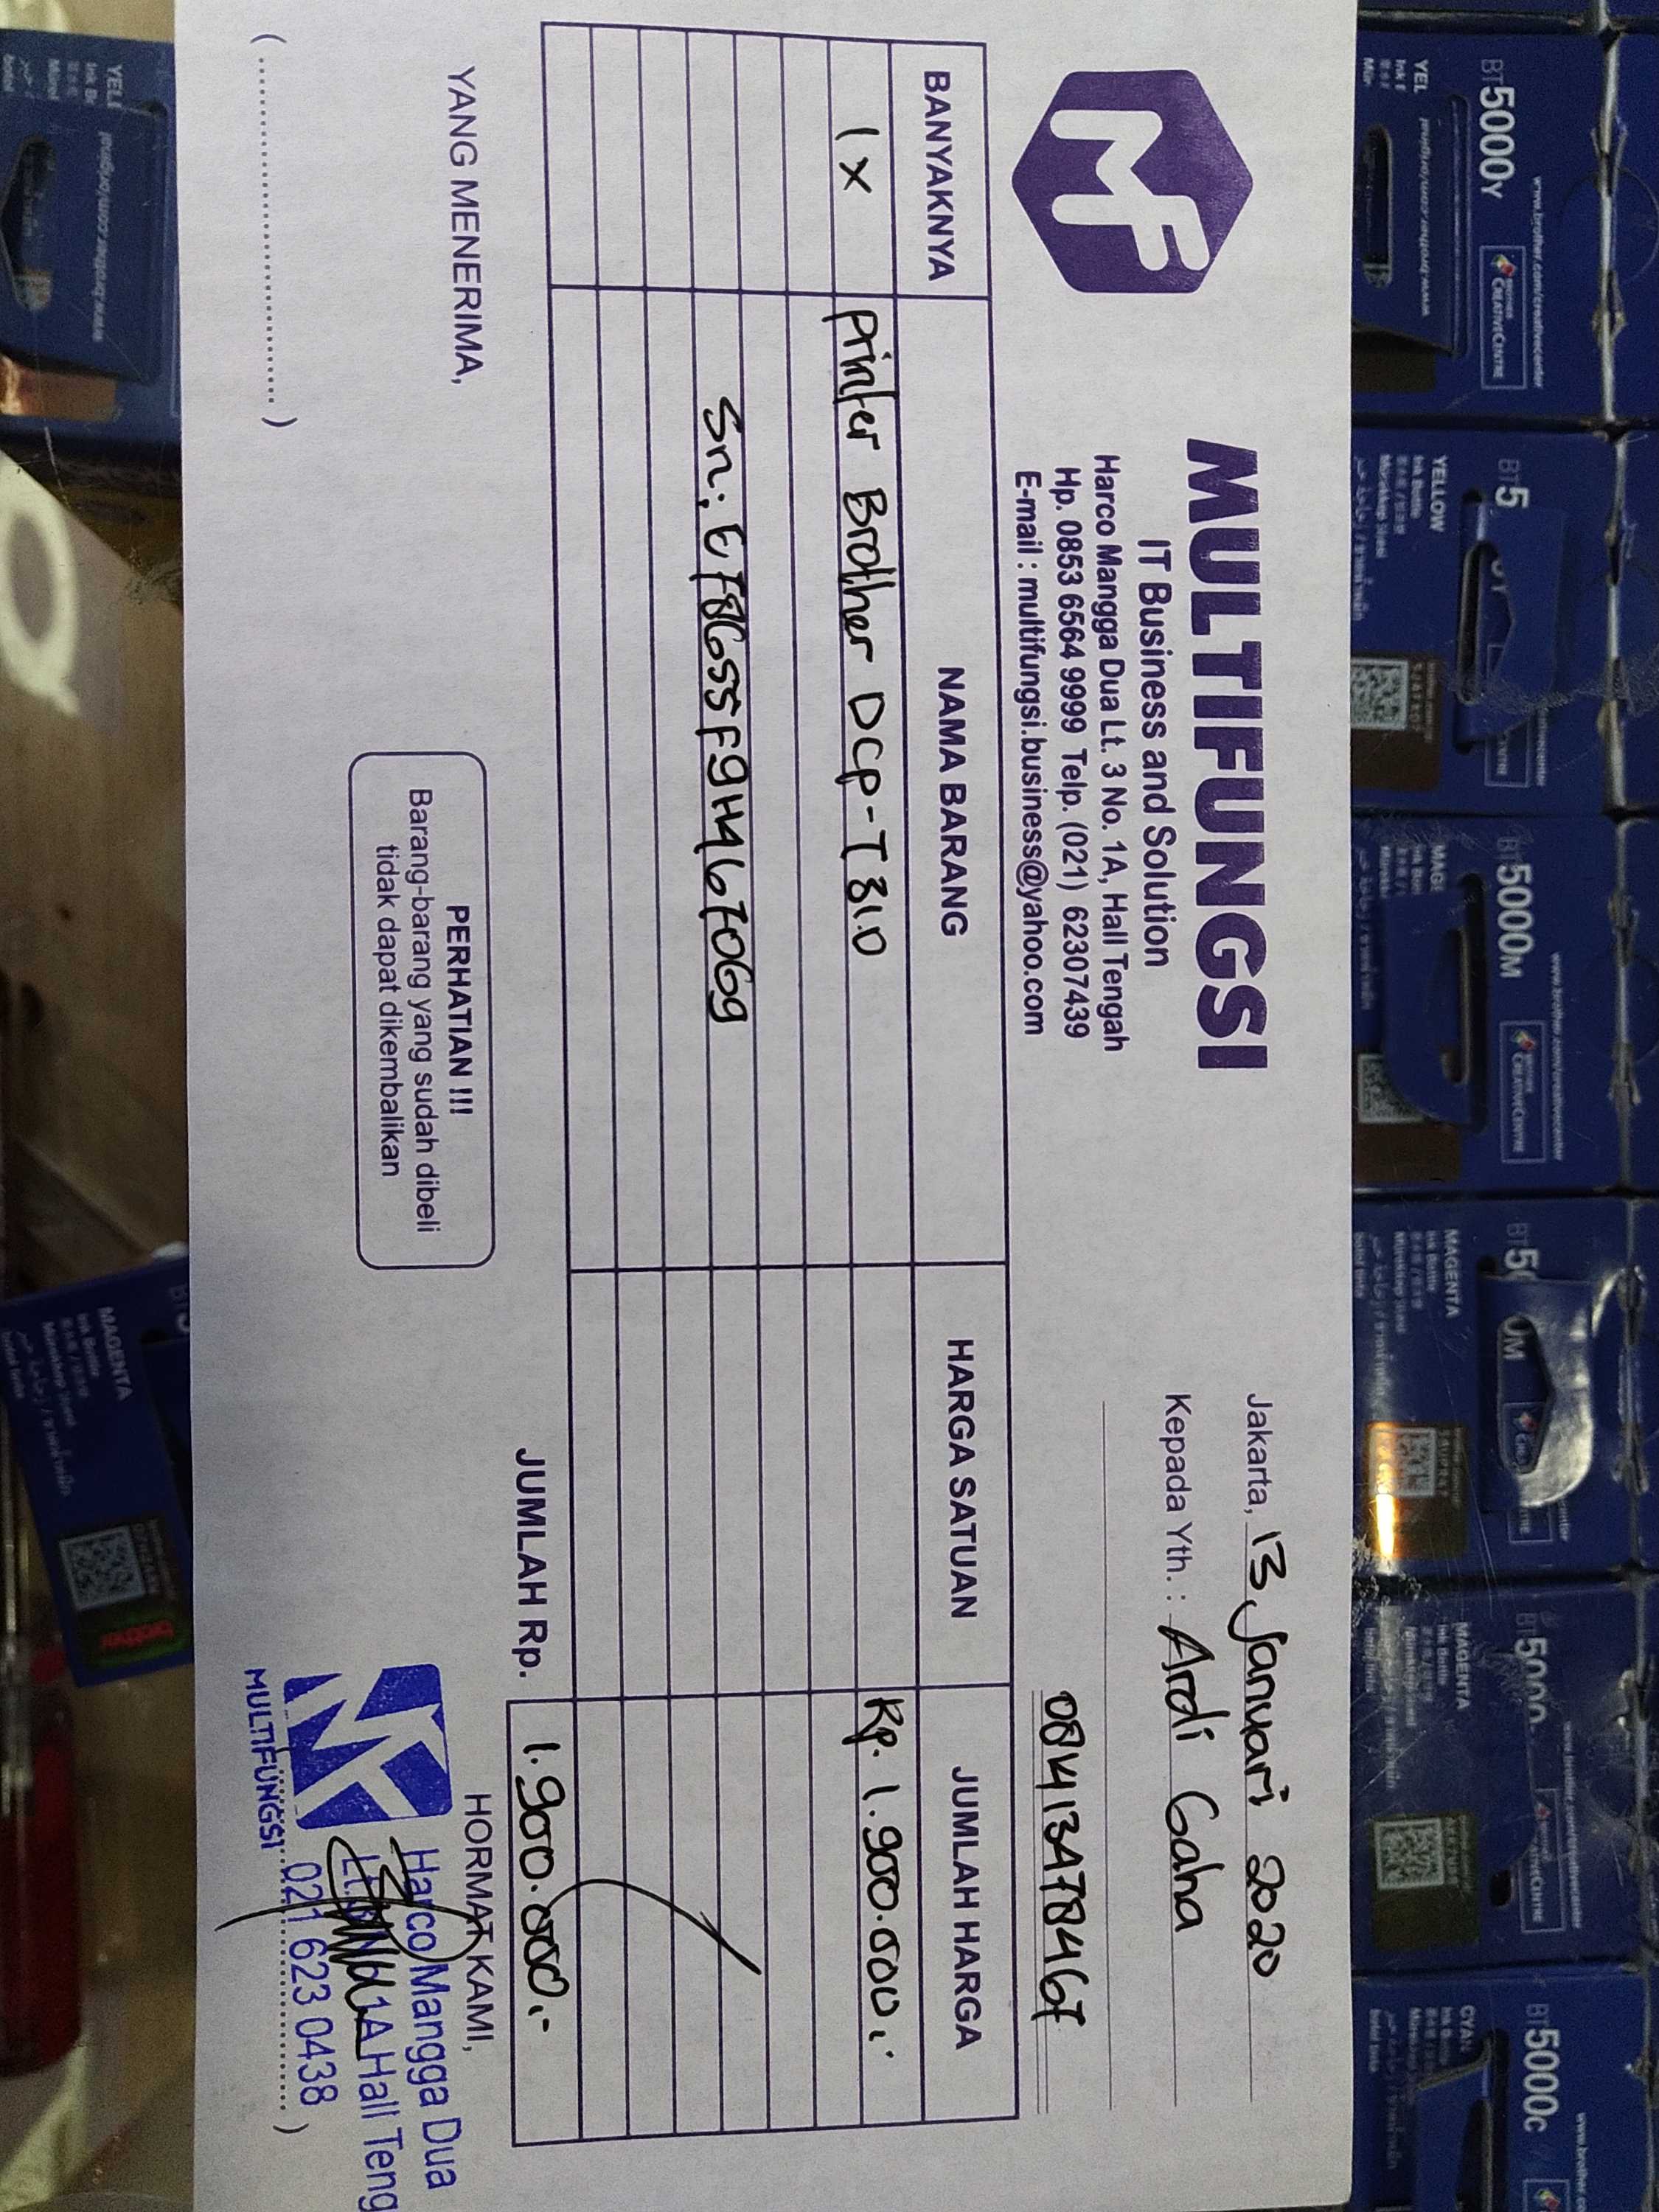 MF
MULTIFUNGSI
IT Business and Solution
Harco Mangga Dua Lt. 3 No. 1A, Hall Tengah
Hp. 0853 6564 9999 Telp. (021) 62307439
E-mail : multifungsi.business@yahoo.com
Jakarta, 13 Januari 2020
Kepada Yth. : Ardi Gaha
08413478467
BANYAKNYA NAMA BARANG HARGA SATUAN JUMLAH HARGA
1x Printer Brother DCP-T310 Rp. 1.900.000.-
Sn: E78655F9H467069
JUMLAH Rp. 1.900.000.-
YANG MENERIMA,
PERHATIAN !!!
Barang-barang yang sudah dibeli
tidak dapat dikembalikan
HORMAT KAMI,
Harco Mangga Dua
1A Hall Teng
021 623 0438
MULTIFUNGSI
BT5000Y
www.brother.com/creativecenter
CREATIVECENTRE
YELLOW
Ink Bottle
BT5000M
MAGENTA
Ink Bottle
BT5000C
CYAN
brother